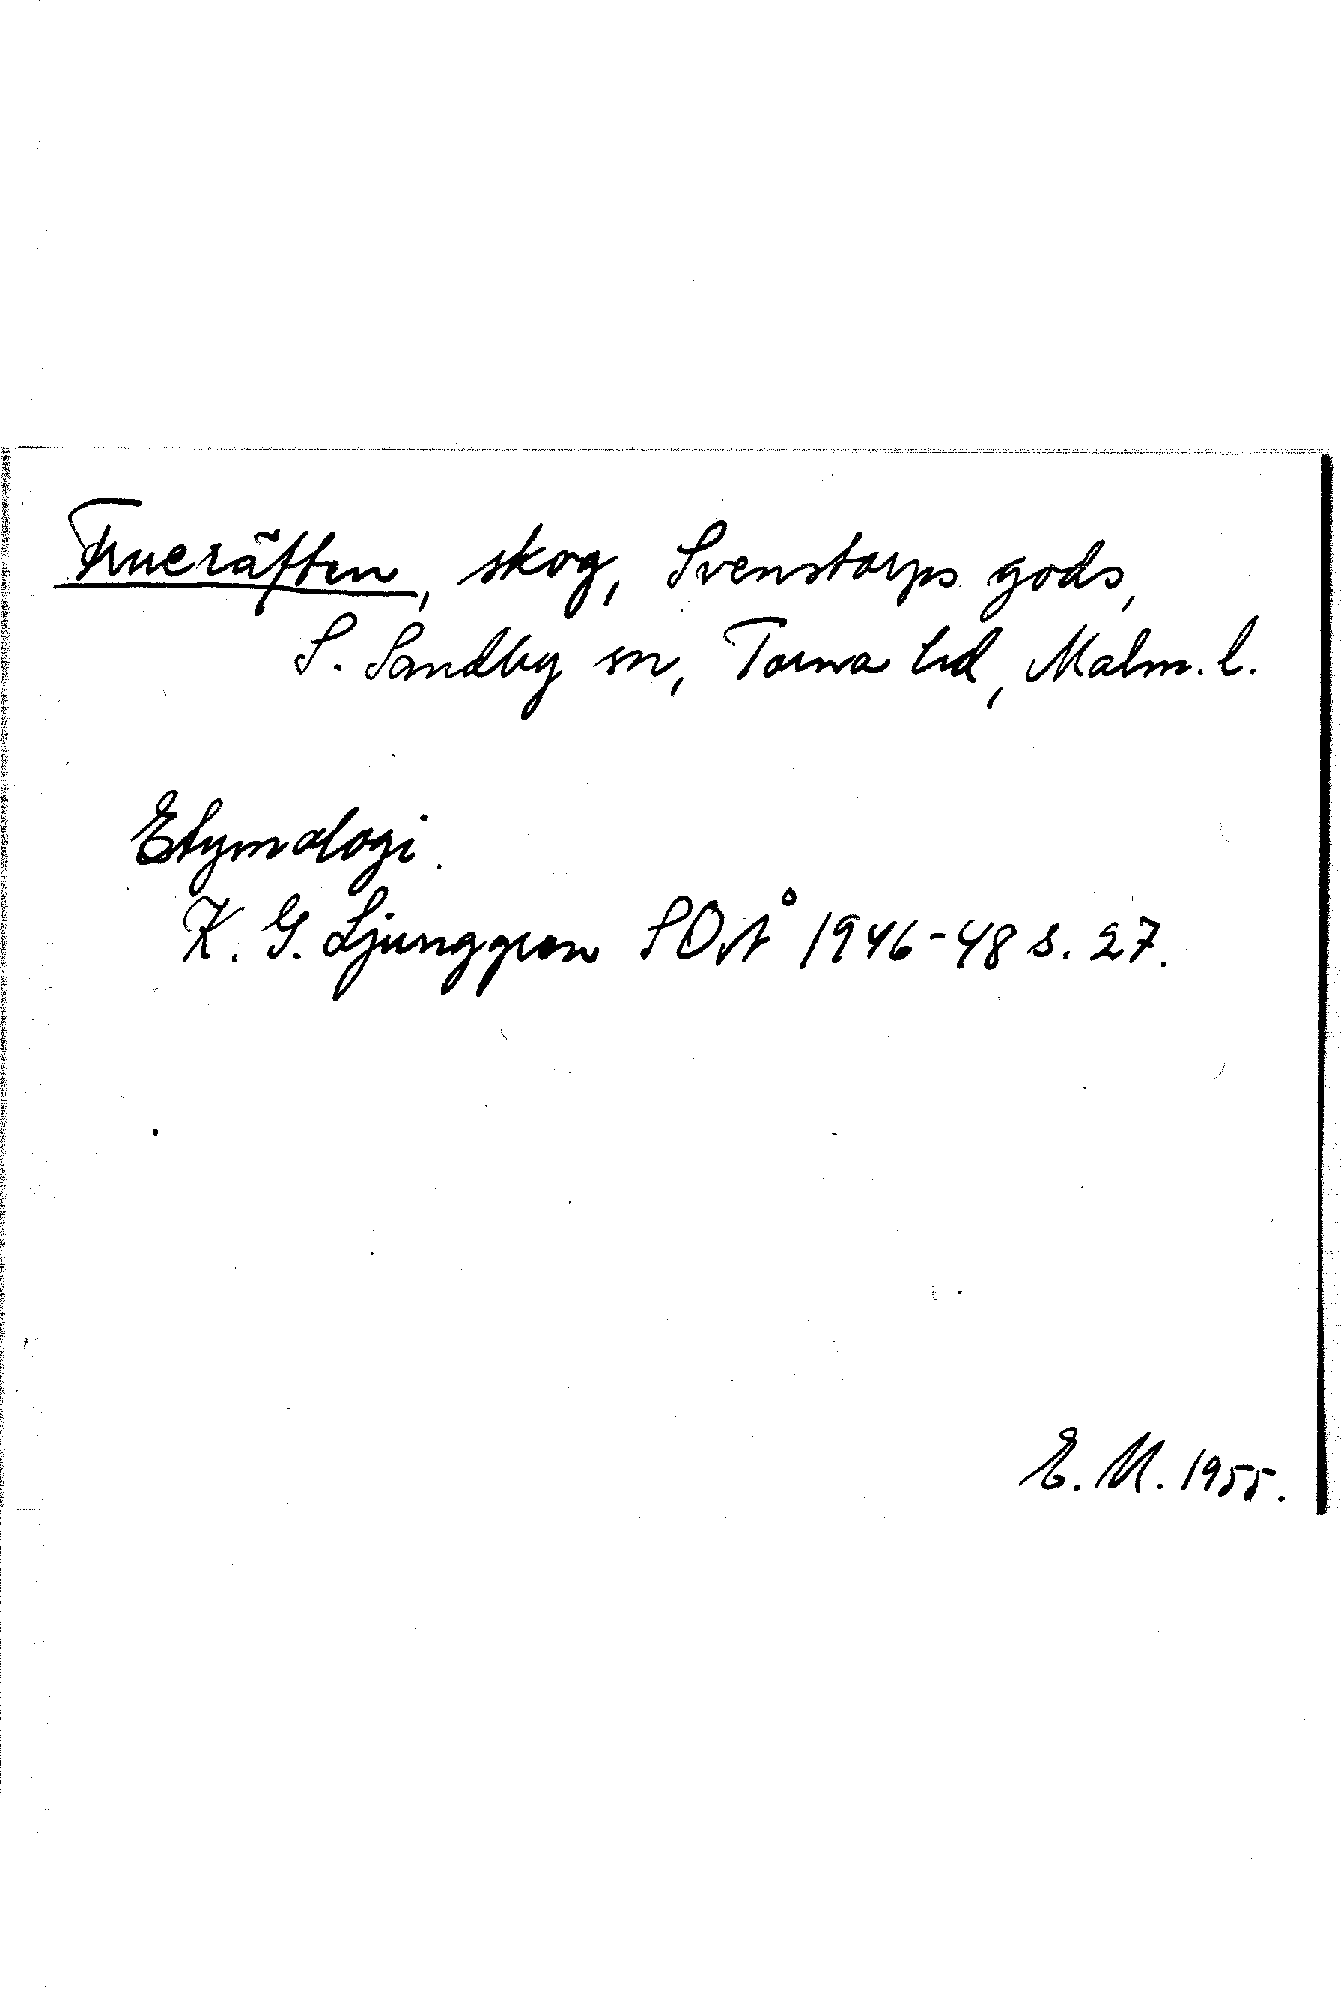 Frueräften, skog, Svenstorps gods,
S. Sandby sn, Torna hd, Malm. l.
Etymologi.
K. G. Ljunggren SOÅ 1946-48 s. 27.
E. M. 1955.